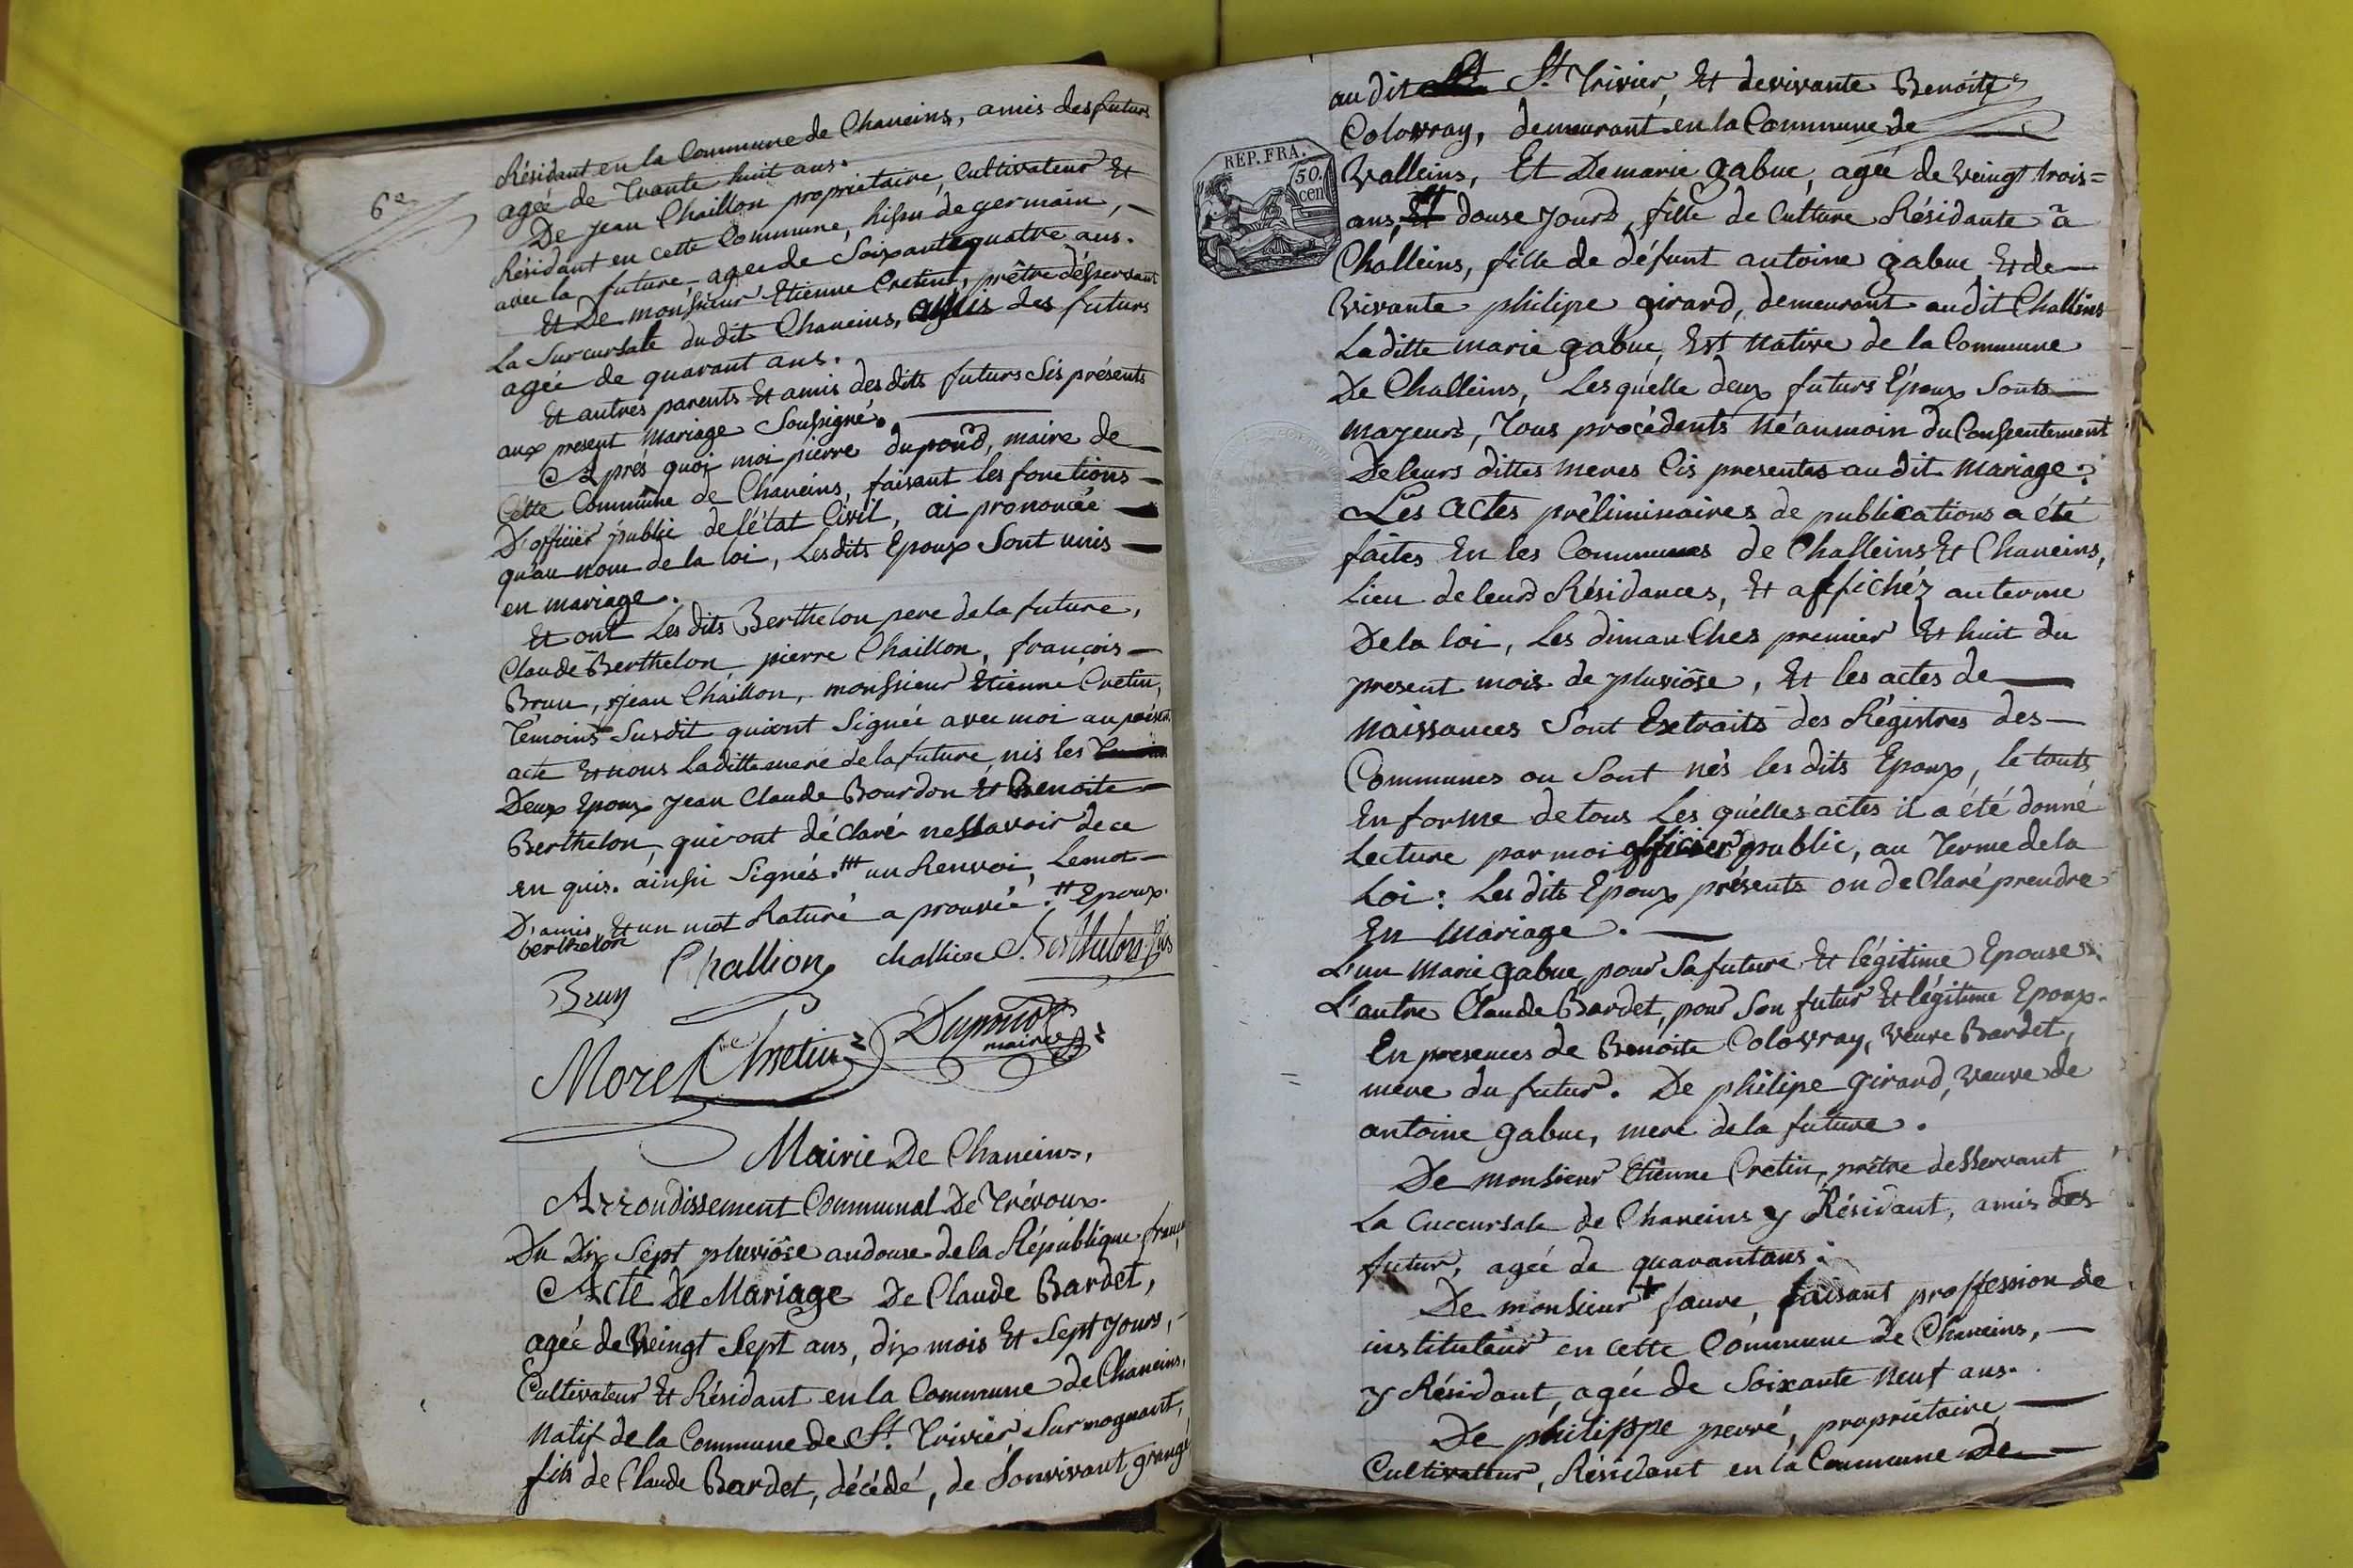 6e
Résidant en la Commune de Chaneins, amis des futurs
agée de Trante huit ans.
De jean Chaillon propriétaire, Cultivateur Et
Résidant en cette Commune, hissu de germain, —
avec la future, agée de Soixante quatre ans.
Et De monsieur Etienne Cretin, prêtre désservant
La Surcursale dudit Chaneins, amis des futurs
agée de quarant ans.
Et autres parents Et amis desdits futurs Sis présents
aux present Mariage Soussigné.
Après quoi moi pierre dupond, maire de
Cette Commune de Chaneins, faisant les fonctions —
D'officier public de l'état Civil, ai prononcée —
qu'au nom de la loi, Lesdits Epoux Sont unis —
en mariage.
Et ont Les dits Berthelon pere de la future,
Claude Berthelon, pierre Chaillon, françois —
Brun, jean Chaillon, monsieur Etienne Cretin,
Témoins Susdit qui ont Signée avec moi au présent
acte Et nous laditte mere de la future, nis les
Deux Epoux jean Claude Bourdon Et Benoite —
Berthelon, qui ont déclaré ne Savoir de ce
en quis. ainsi Signés. un Renvoi, Lemot —
D'amis, Et un mot Raturé a prouvée. Epoux.
berthelon Challion challion C. Berthelon fils
Brun
Morel Cretin Dupond
maire
Mairie De Chaneins,
Arrondissement Communal De Trévoux.
Du Dix Sept pluviôse an douse de la République
Acte De Mariage De Claude Bardet,
agée de Veingt Sept ans, dix mois Et Sept jours, —
Cultivateur Et Résidant en la Commune de Chaneins,
Natif de la Commune de St. Trivier, Sur mognant,
fils de Claude Bardet, décédé, de Sonvivant grangé
REP. FRA.
50.
cen
audit St. Trivier, Et devivante Benoite
Colovray, demeurant en la Commune de
Valleins, Et De marie gabue, agée de veingt trois=
ans, Et douse jours, fille de Culture Résidante à
Challeins, fille de défunt antoine gabue, Et de —
Vivante philipe girard, demeurant audit Challins
Laditte marie gabue, Est Native de la Commune
De Challeins, Lesquelle deux futurs Epoux Sonts —
mayeurs, Tous procédents Néanmoin du Consentement
De leurs dittes meres Cis presentes au dit Mariage.
Les Actes préliminaires de publications a été
faites En les Communes de Challeins Et Chaneins,
Lieu de leurs Résidances, Et affichéz au terme
De la loi, Les dimanches premier Et huit du
present mois de pluviôse, Et les actes de —
Naissances Sont Extraits des Régistres des —
Communes ou Sont nés les dits Epoux, le touts
En forme de tous Les quélles actes il a été donné
Lecture par moi officier public, au Terme de la
Loi: Les dits Epoux présents on declaré prendre
En Mariage. —
L'un Marie gabue, pour Sa future Et légitime Epouse.
L'autre Claude Bardet, pour Son futur Et légitime Epoux.
En presences de Benoite Colovray, Veuve Bardet,
mere du futur. De philipe girard, Veuve de
antoine gabue, mere de la future.
De monsieur Etienne Cretin, prêtre desservant
La Cuccursale de Chaneins y Résidant, amis des
futur, agée de quarantans.
De monsieur + fauve, faisant proffession de
instituteur en cette Commune de Chaneins, —
y Résidant, agée de Soixante Neuf ans.
De philippe perré, propriétaire, —
Cultivateur, Résidant en la Commune De —